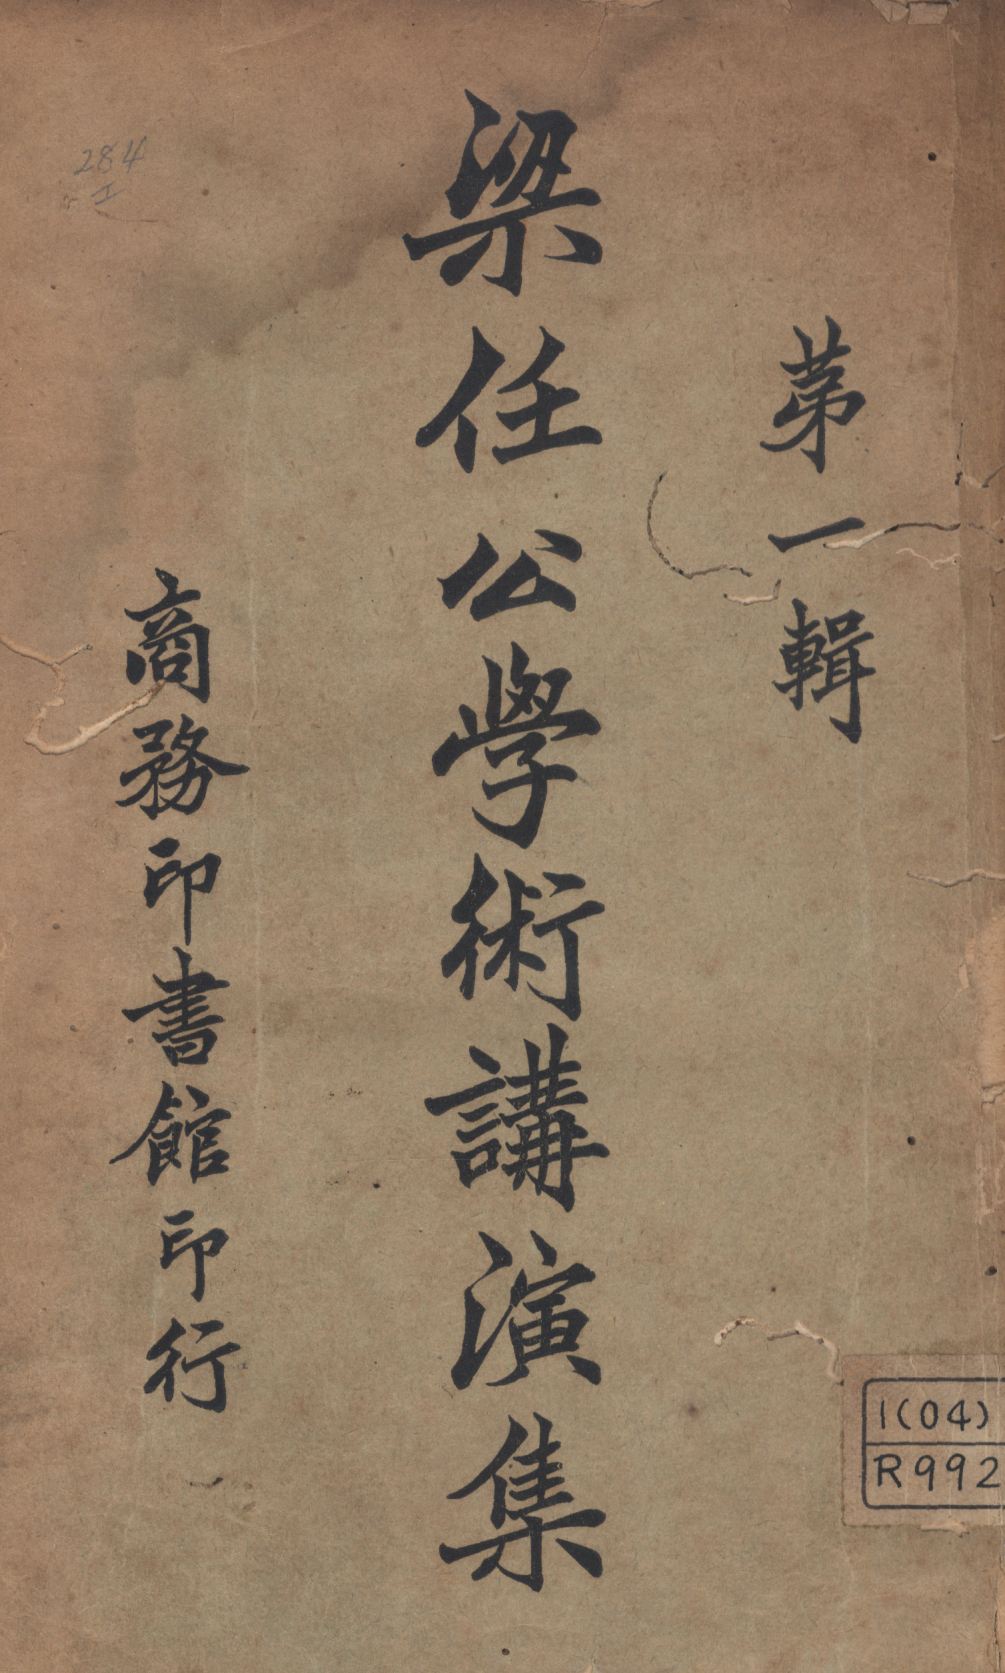 第一輯
梁任公學術講演集
商務印書館印行
284
I
1(04)
R992